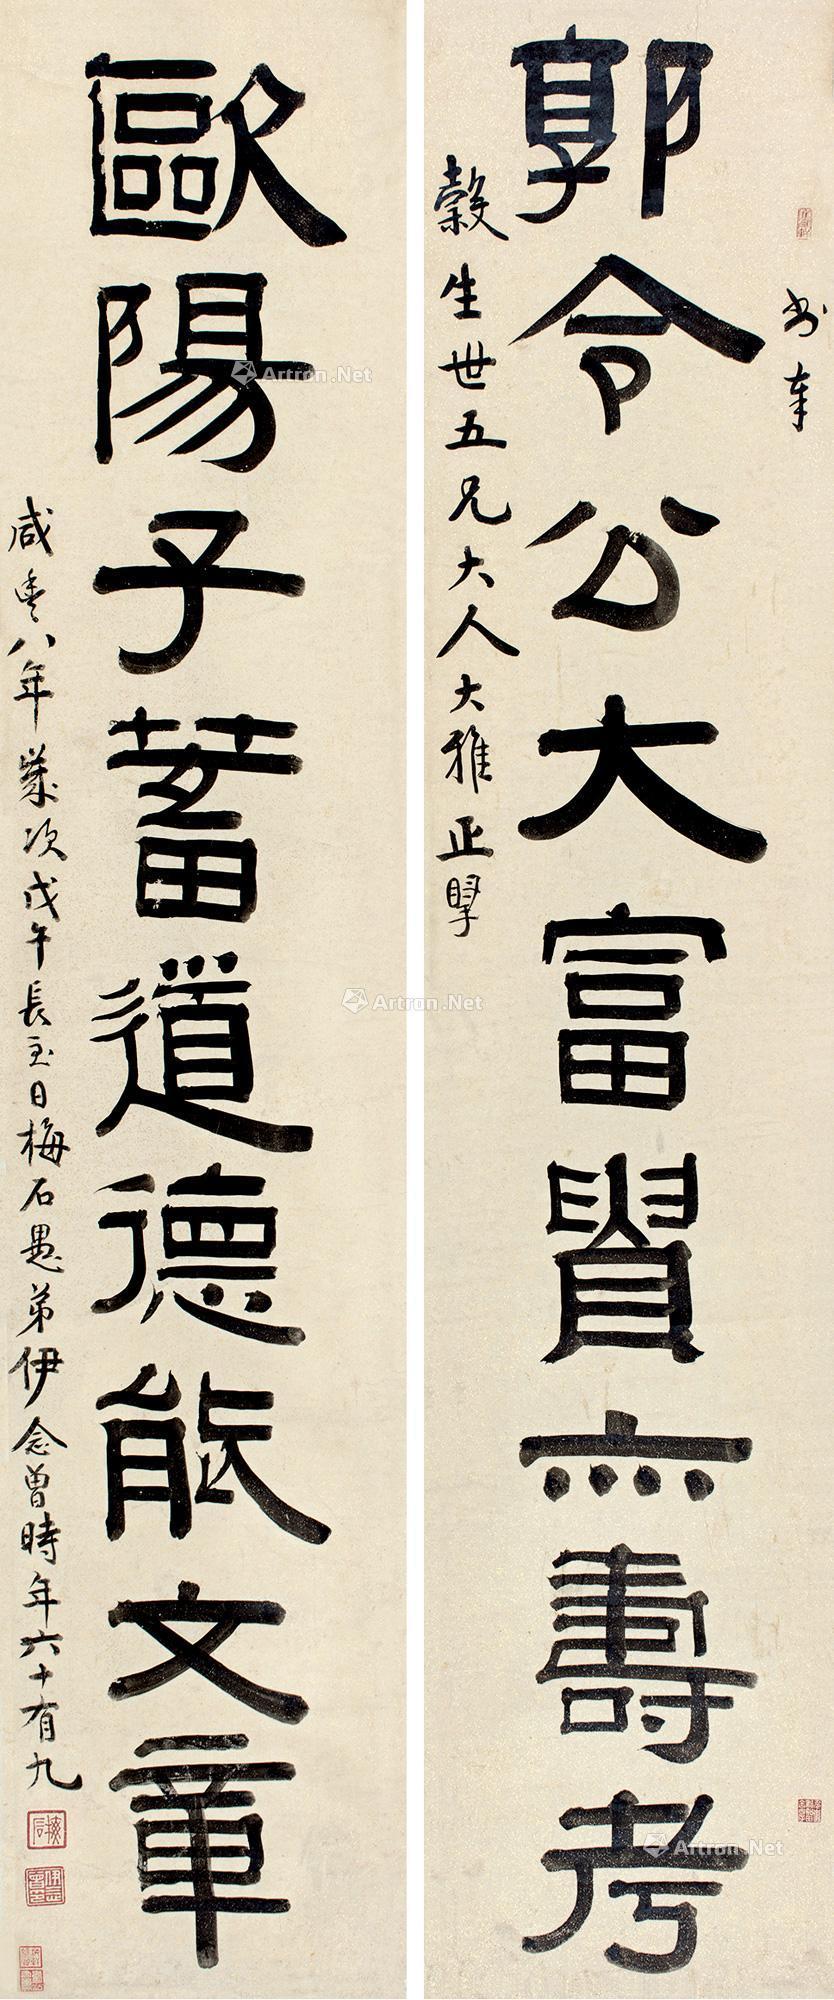 郭令公大富貴亦壽考
書奉
穀生世五兄大人大雅正擘
歐陽子蓄道德能文章
咸豐八年歲次戊午長至日梅石愚弟伊念曾時年六十有九
Artron.Net
Artron.Net
Artron.Net